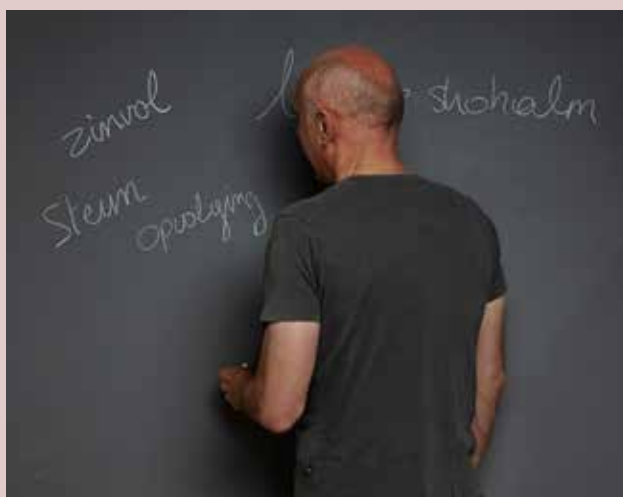 zinvol
strohhalm
Steun
opvolging